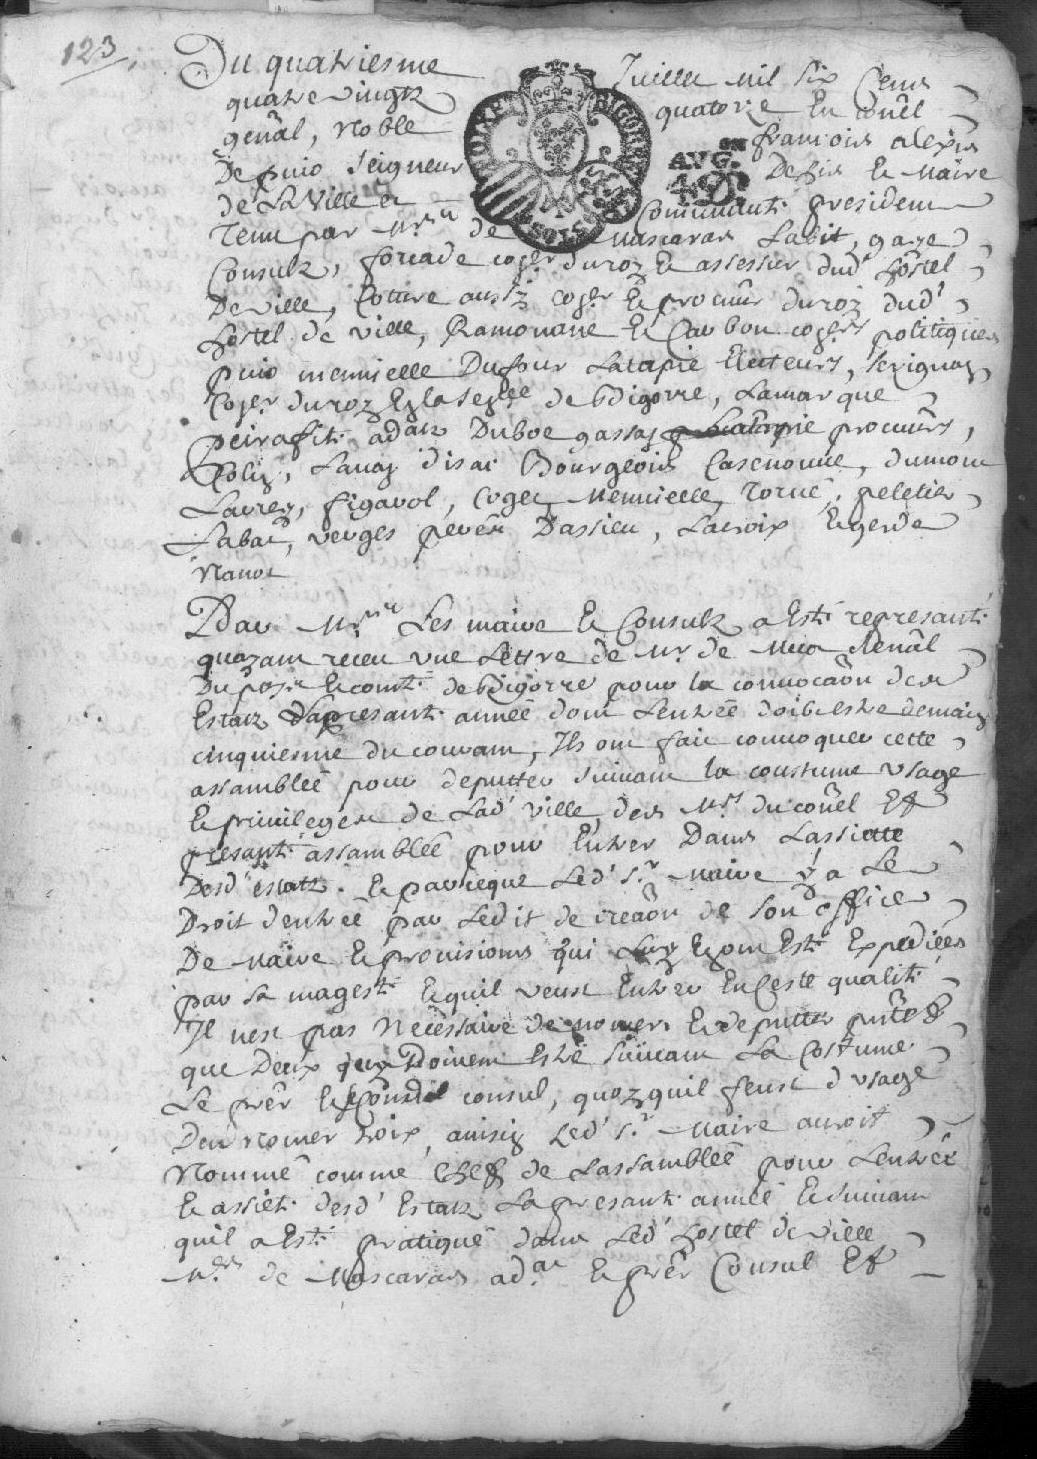 123
Du quatriesme Juillet mil six Cens
quatre vingtz quatorze En conêl
genâl, Noble françois alexis
De puio seigneur Debis Et Maire
de La Ville et Communauté president
Tenu par Mrs de Mascaras Labit, gaye
Consulz, forcade coger du roy Et assesseur dud' hostel
De ville, Cotture aussy coger Et procûr du roy dud'
hostel de ville, Ramonane Et Caubou cogers politiques
puio mennielle Dufour Latapie Electeurs, serignay
Coger du roy En la seneê de bigorre, Lamarque
peirafite advatz Duboe gassay procûrs,
Coly, Lanay disac Bourgeois Casenoune, dumon
Laurey, figarol, Coger Mennielle Torné, peletier
Labat, verges Dassieu, Lacroix Et gerde
Par Mrs Les maire Et Consulz a Esté represanté
quayant receu une Lettre de Mr de Mua senâl
Du pays Et comté de bigorre pour la convocâon des
Estatz Lapresant année dont Lentrée doib estre demain
cinquiesme du courant, Ils ont fait convoquer cette
assamblée pour deputter suivant la coustume usage
Et privileges de Lad' ville des Mrs du conêl Et
presante assamblée pour Entrer Dans Lassiette
Desd' estatz. Et parceque Led' sr Maire y a Le
Droit dentrée par Ledit de creâon de son office
De Maire Et provisions qui Luy En ont Esté Expediées
par sa magesté Et quil veust Entrer En Ceste qualité
Il nest pas Necessaire de nomer Et deputter
que Deux qui Doivent Estre suivant La Costume
Le prêr Et segond consul, quoyquil feust d usage
Den Nomer trois, ainsin Led' sr Maire auroit
Nommé comme Chef de Lassamblée pour Lentrée
Et assiete desd' Estatz La presante année Et suivant
quil a Esté pratiqué dans Led' hostel de ville
Mrs de Mascaras adat Et prêr Consul Et
BIGORRE
AVG.on